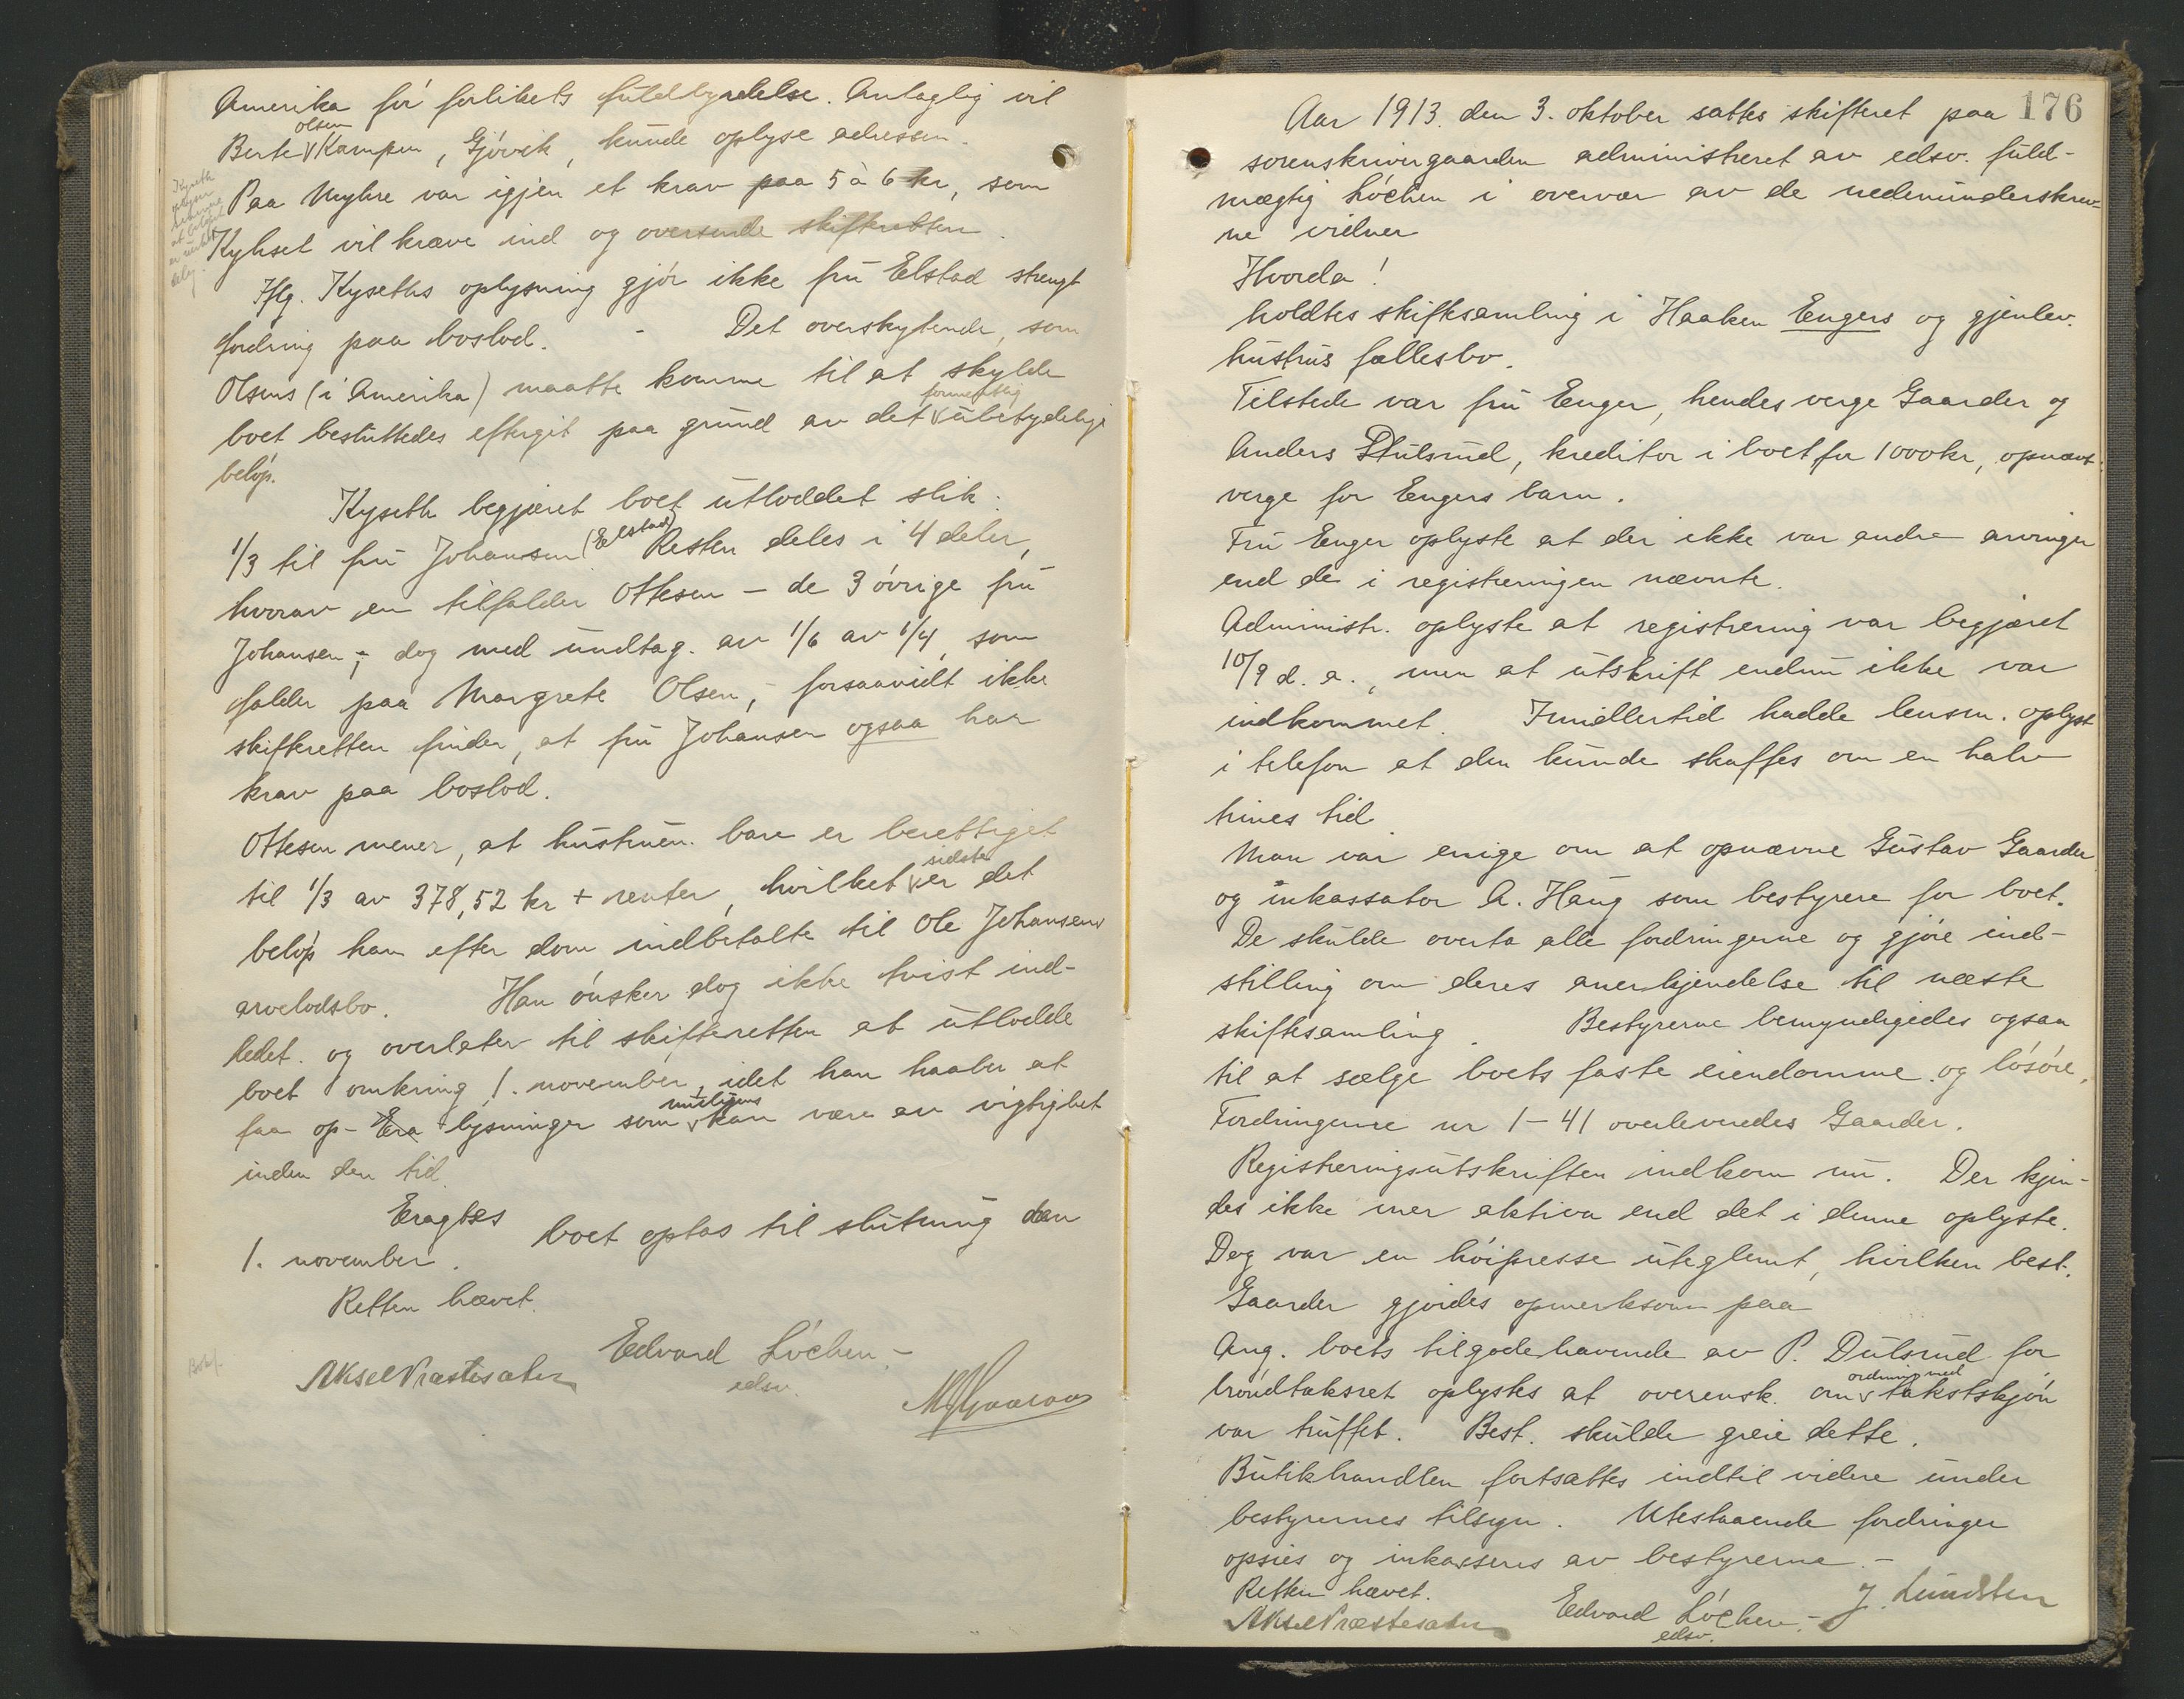 Amerika før forlikets fuldbyrdelse. Antagelig vil
Berte olsen Kampen, Gjøvik, kunde oplyse adressen.
Paa Myhre var igjen et krav paa 5 à 6 kr, som
Kyhset vil kræve ind og oversende skifteretten.
Iflg. Kyseths oplysning gjør ikke fru Elstad strengt
fordring paa boslod. - Det overskytende, som
Olsens (i Amerika) maatte komme til at skylde
boet besluttedes eftergit paa grund av det formentlig ubetydelige
beløp.
Kyseth begjæret boet utloddet slik:
1/3 til fru Johansen (Elstad) Resten deles i 4 deler,
hvorav en tilfalder Ottesen - de 3 øvrige fru
Johansen; dog med undtag. av 1/6 av 1/4, som
falder paa Margrete Olsen, - forsaavidt ikke
skifteretten finder, at fru Johansen ogsaa har
krav paa boslod.
Ottesen mener, at hustruen bare er berettiget
til 1/3 av 378,52 kr + renter, hvilket sidste er det
beløp han efter dom indbetalte til Ole Johansens
arvelodsbo. Han ønsker dog ikke tvist ind-
ledet og overlater til skifteretten at utlodde
boet omkring 1. november, idet han haaber at
faa op- Era lysninger som muligens kan være av vigtighet
inden den tid.
Eragtes
boet optas til slutning den
1. november.
Retten hævet.
Edvard Løchen -
edsv.
Aksel Præstesæter
176
Aar 1913 den 3. oktober sattes skifteret paa
sorenskrivergaarden administreret av edsv. fuld-
mægtig Løchen i overvær av de nedenunderskrev-
ne vidner
Hvorda!
holdtes skiftesamling i Haaken Engers og gjenlev.
hustrus fællesbo.
Tilstede var fru Enger, hendes verge Gaarder og
Anders Dulsrud, kreditor i boet for 1000 kr, opnævt
verge for Engers barn.
Fru Enger oplyste at der ikke var andre arvinger
end de i registreringen nævnte.
Administr. oplyste at registrering var begjæret
10/9 d. a., men at utskrift endnu ikke var
indkommet. Imidlertid hadde lensm. oplyst
i telefon at den kunde skaffes om en halv
times tid.
Man var enige om at opnævne Gustav Gaarder
og inkassator A. Haug som bestyrere for boet.
De skulde overta alle fordringerne og gjøre ind-
stilling om deres anerkjendelse til næste
skiftesamling. Bestyrerne bemyndigedes ogsaa
til at sælge boets faste eiendomme og løsøre.
Fordringerne nr 1-41 overleveredes Gaarder.
Registreringsutskriften indkom nu. Der kjen-
des ikke mer aktiva end det i denne oplyste.
Dog var en høipresse uteglemt, hvilken best.
Gaarder gjordes opmerksom paa
Ang. boets tilgodehavende av P. Dulsrud for
brøndtaksret oplystes at overensk. om ordning med takstskjøn
var truffet. Best. skulde greie dette.
Butikhandlen fortsættes indtil videre under
bestyrernes tilsyn. Utestaaende fordringer
opsies og inkasseres av bestyrerne. -
Retten hævet.
Edvard Løchen. -
edsv.
J. Lundsten
Aksel Præstesæter